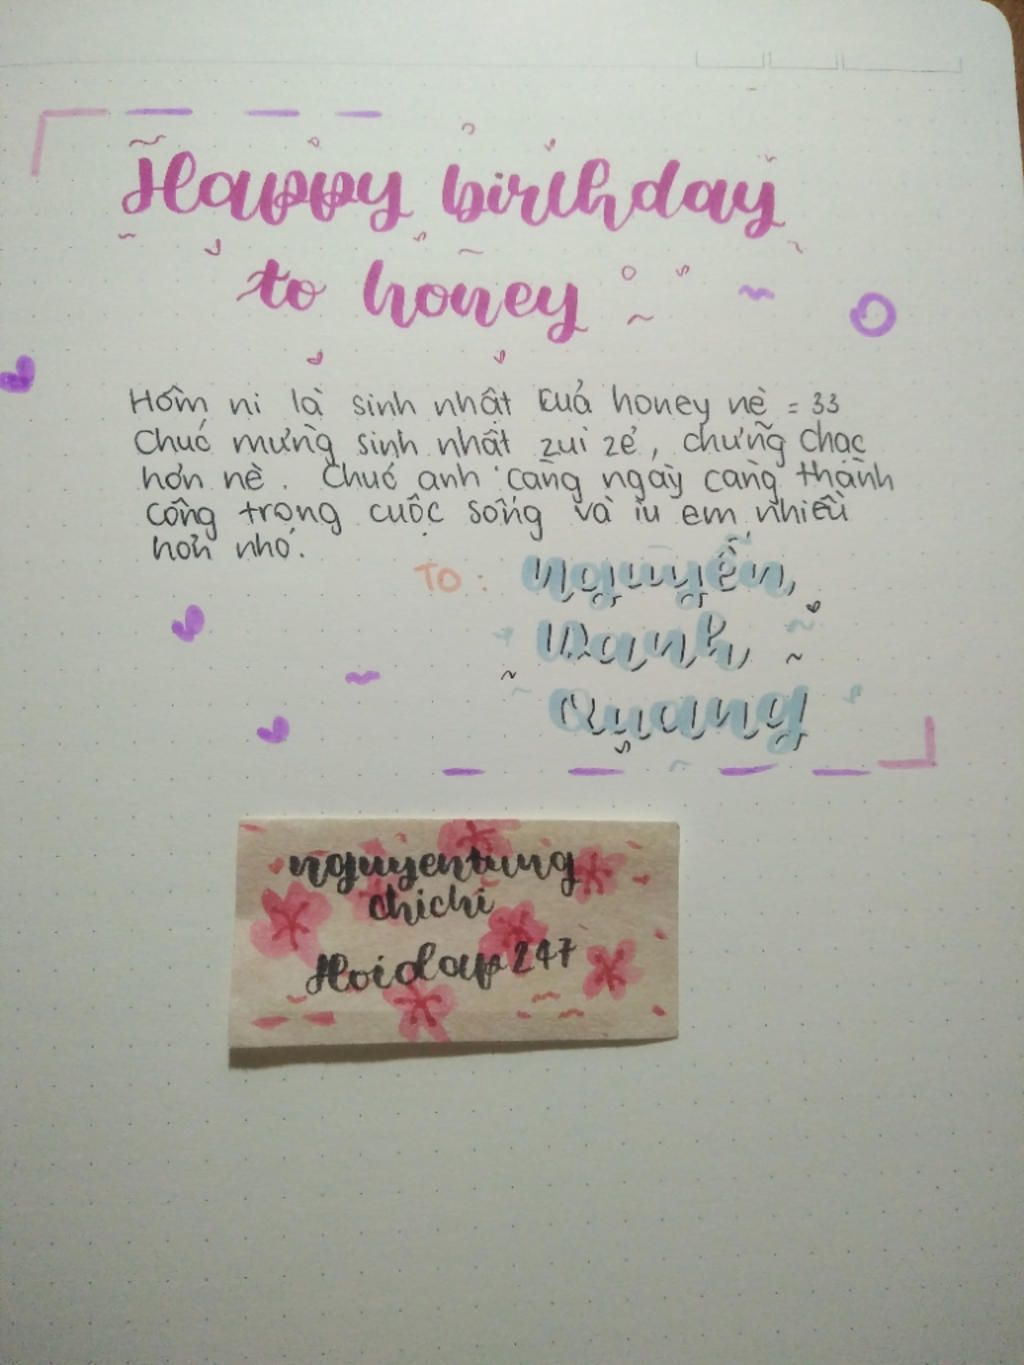 Happy birthday
to honey
Hôm ni là sinh nhật cuả honey nè = 33
Chuć mưǹg sinh nhật zui zẻ, chưñg chạc
hơn nè. Chuć anh càng ngaỳ càng thành
công trong cuộc sống và iu em nhiều
hơn nhó.
To: Nguyễn
Danh
Quang
nguyentung
chichi
Hoidap247